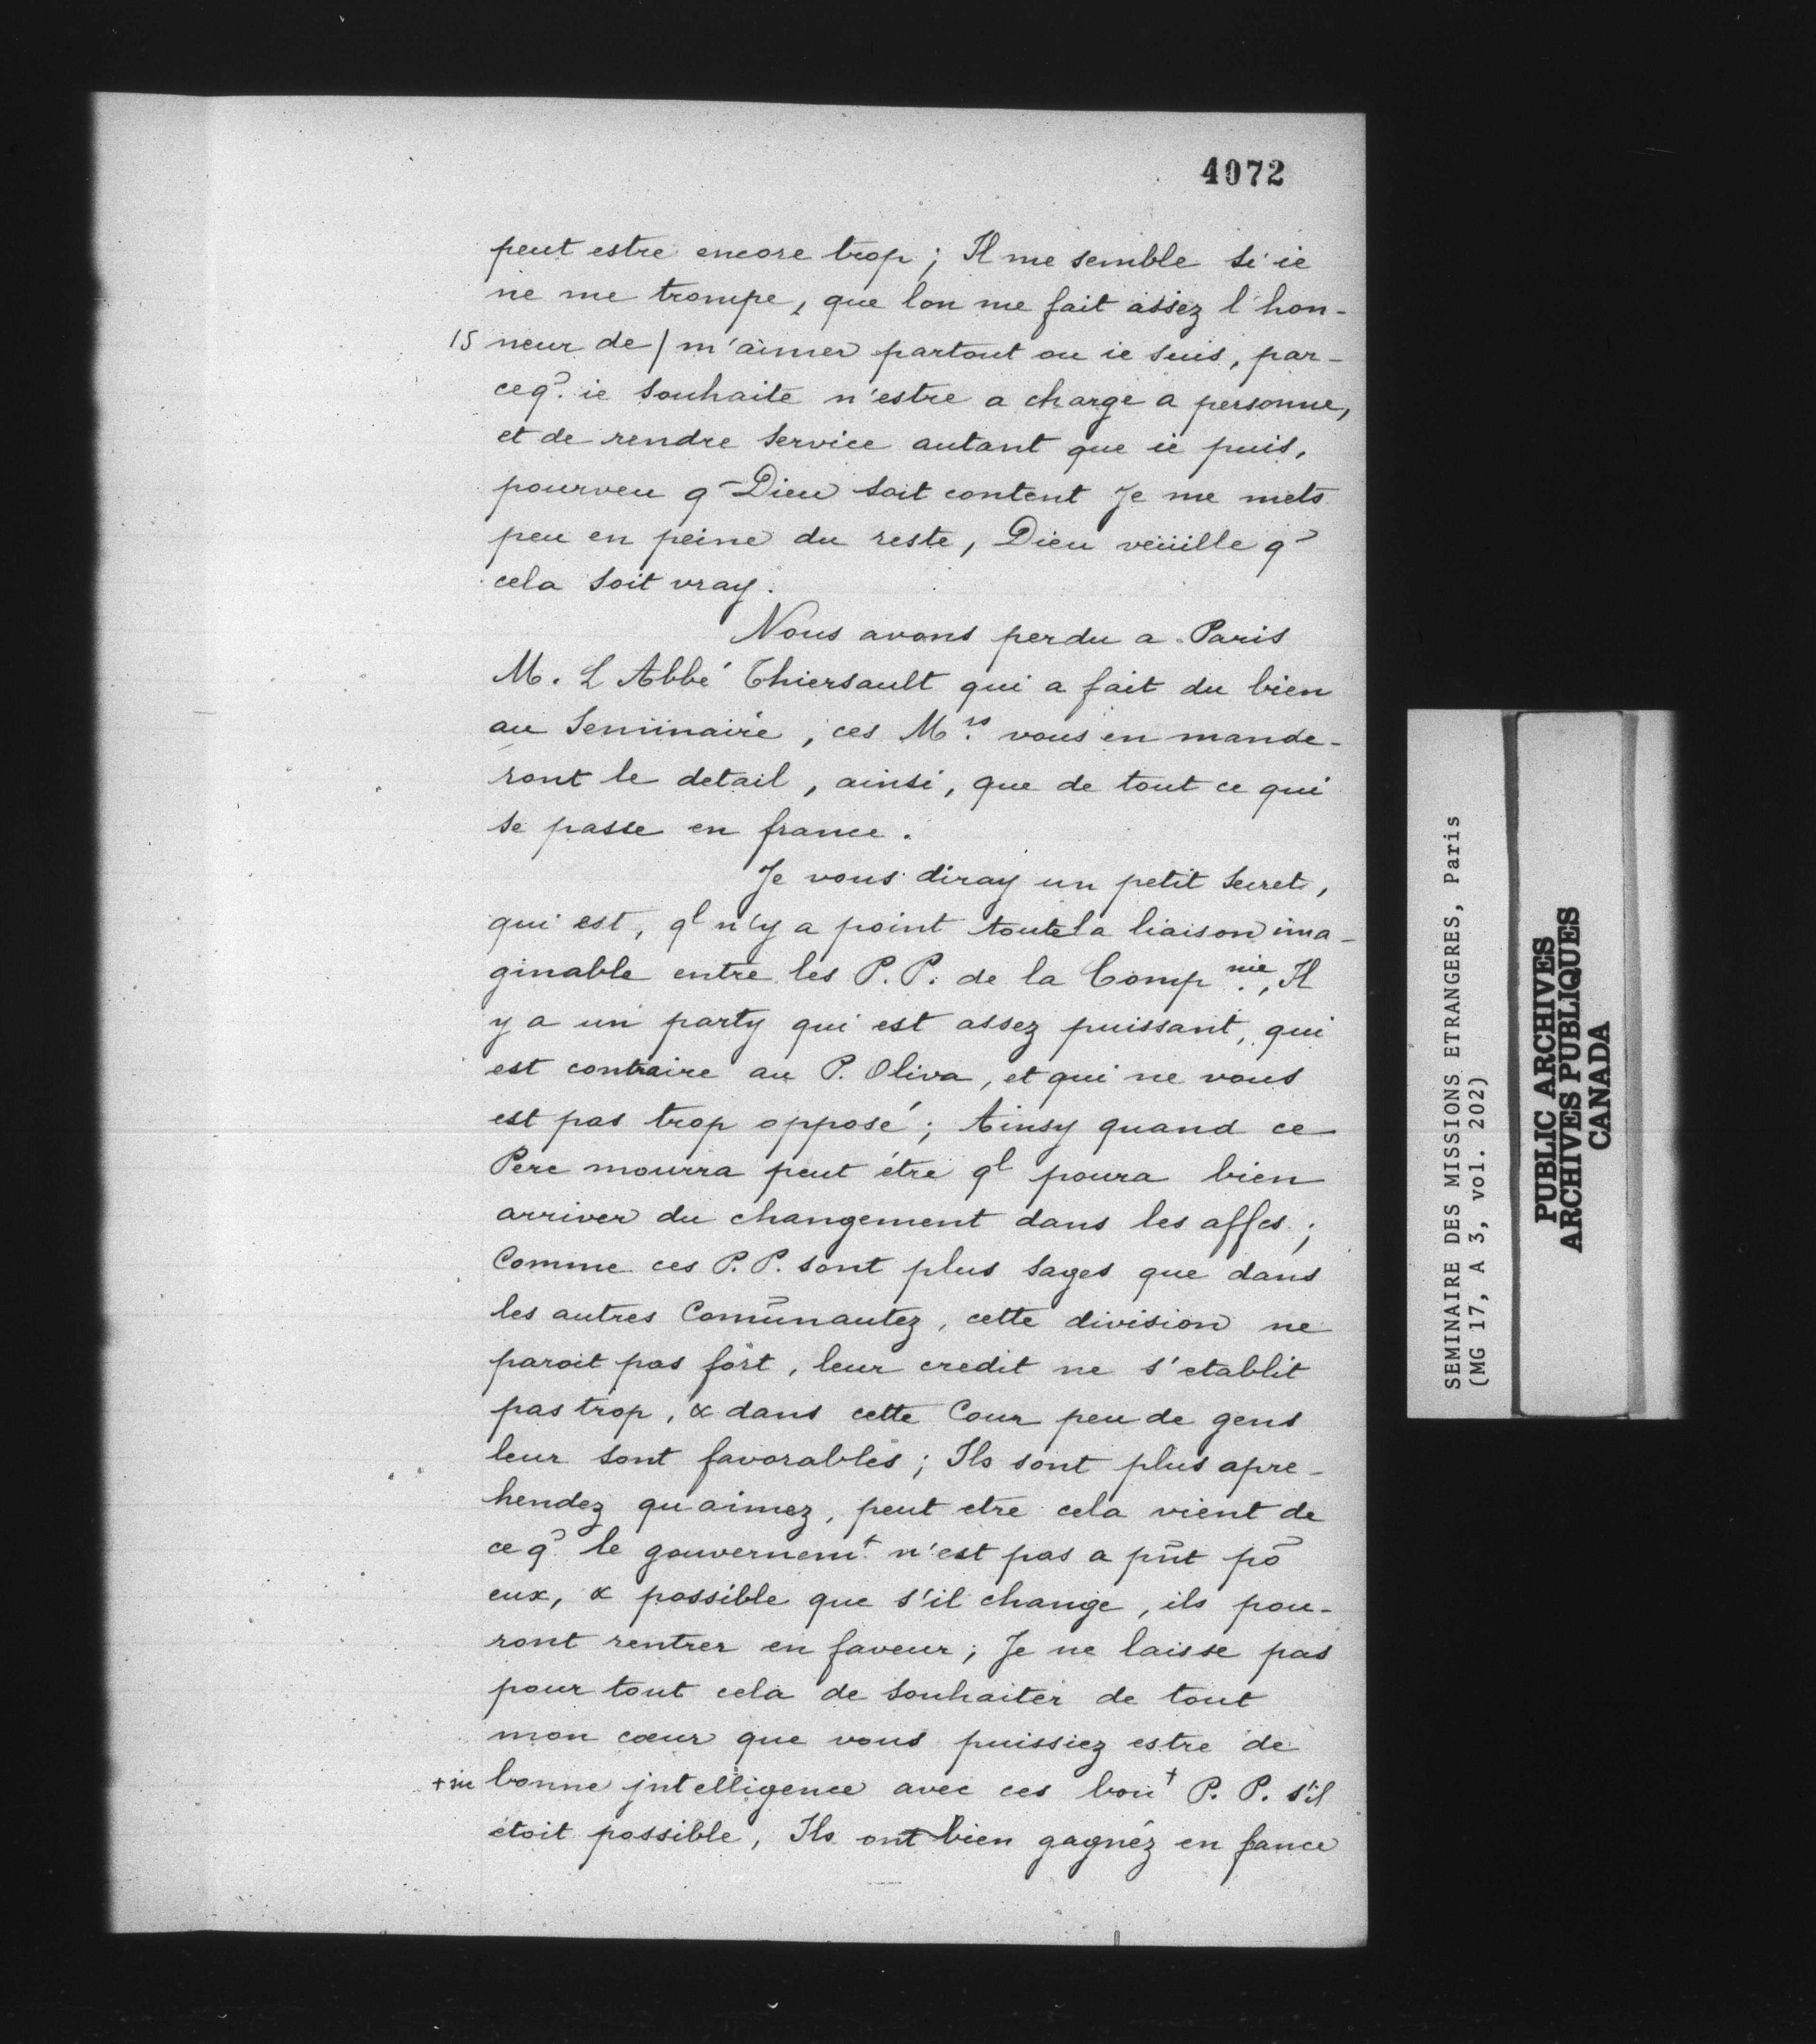 4072
peut estre encore trop ; Il me semble si ie
ne me trompe, que lon me fait assez l'hon-
15 neur de / m'aimer partout ou ie suis, par-
ceq̃ ie souhaite n'estre a charge a personne,
et de rendre service autant que ie puis,
pourveu q̃ Dieu soit content Je me mets
peu en peine du reste, Dieu veüille q̃
cela soit vray.
Nous avons perdu a Paris
M. L Abbé Thiersault qui a fait du bien
au Seminaire, ces M.rs vous en mande-
ront le detail, ainsi, que de tout ce qui
se passe en france.
Je vous diray un petit secret,
qui est, ql n'y a point toute la liaison ima-
ginable entre les P.P. de la Comp.nie, Il
y a un party qui est assez puissant, qui
est contraire au P. Oliva, et qui ne vous
est pas trop opposé ; Ainsy quand ce
Pere mourra peut étre ql poura bien
arriver du changement dans les affes ;
Comme ces P.P. sont plus sages que dans
les autres Com̃unautez, cette division ne
paroit pas fort, leur credit ne s'etablit
pas trop, & dans cette Cour peu de gens
leur sont favorables ; Ils sont plus apre-
hendez qu aimez, peut etre cela vient de
ce q̃ le gouvernem.t n'est pas a pñt põ
eux, & possible que s'il change, ils pou-
ront rentrer en faveur ; Je ne laisse pas
pour tout cela de souhaiter de tout
mon cœur que vous puissiez estre de
+ sic bonne jntelligence avec ces bon + P. P. s'il
étoit possible, Ils ont bien gagnéz en fance
SEMINAIRE DES MISSIONS ETRANGERES, Paris
(MG 17, A 3, vol. 202)
PUBLIC ARCHIVES
ARCHIVES PUBLIQUES
CANADA